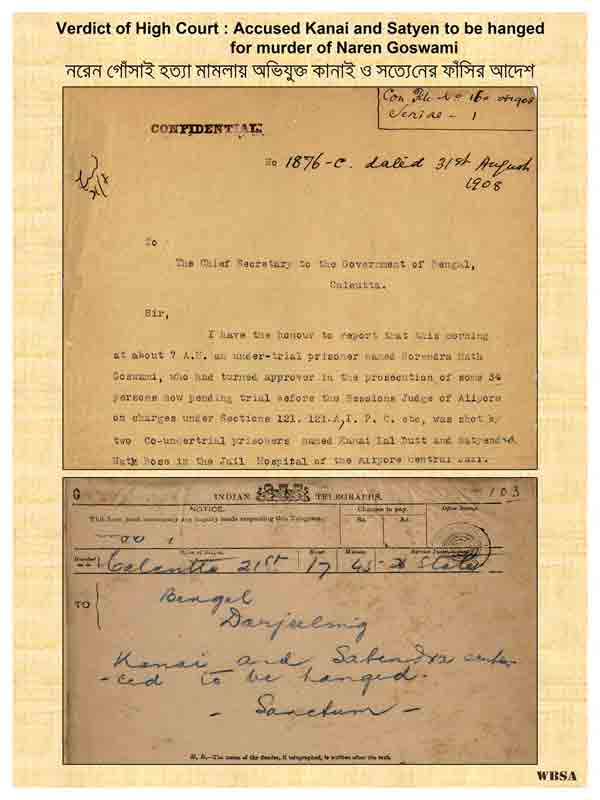 Verdict of High Court : Accused Kanai and Satyen to be hanged
for murder of Naren Goswami
নরেন গোঁসাই হত্যা মামলায় অভিযুক্ত কানাই ও সত্যেনের ফাঁসির আদেশ
Con. File No 16 of 1908
Serial - 1
CONFIDENTIAL.
No 1876-C. dated 31st August
1908
To
The Chief Secretary to the Government of Bengal,
Calcutta.
Sir,
I have the honour to report that this morning
at about 7 A.M. an under-trial prisoner named Norendra Nath
Goswami, who had turned approver in the prosecution of some 34
persons now pending trial before the Sessions Judge of Alipore
on charges under Sections 121. 121-A, I. P. C. etc, was shot by
two Co-undertrial prisoners named Kanai Lal Dutt and Satyendra
Nath Bose in the Jail Hospital of the Alipore Central Jail.
G
103
INDIAN TELEGRAPHS.
NOTICE.
Charges to pay.
Office Stamp.
This form must accompany any inquiry made respecting this Telegram.
Rs. As.
Calcutta 21st 17 45 State
TO
Bengal
Darjeeling
Kanai and Satendra senten-
-ced to be hanged.
- Sanctum -
N. B.—The name of the Sender, if telegraphed, is written after the text.
WBSA